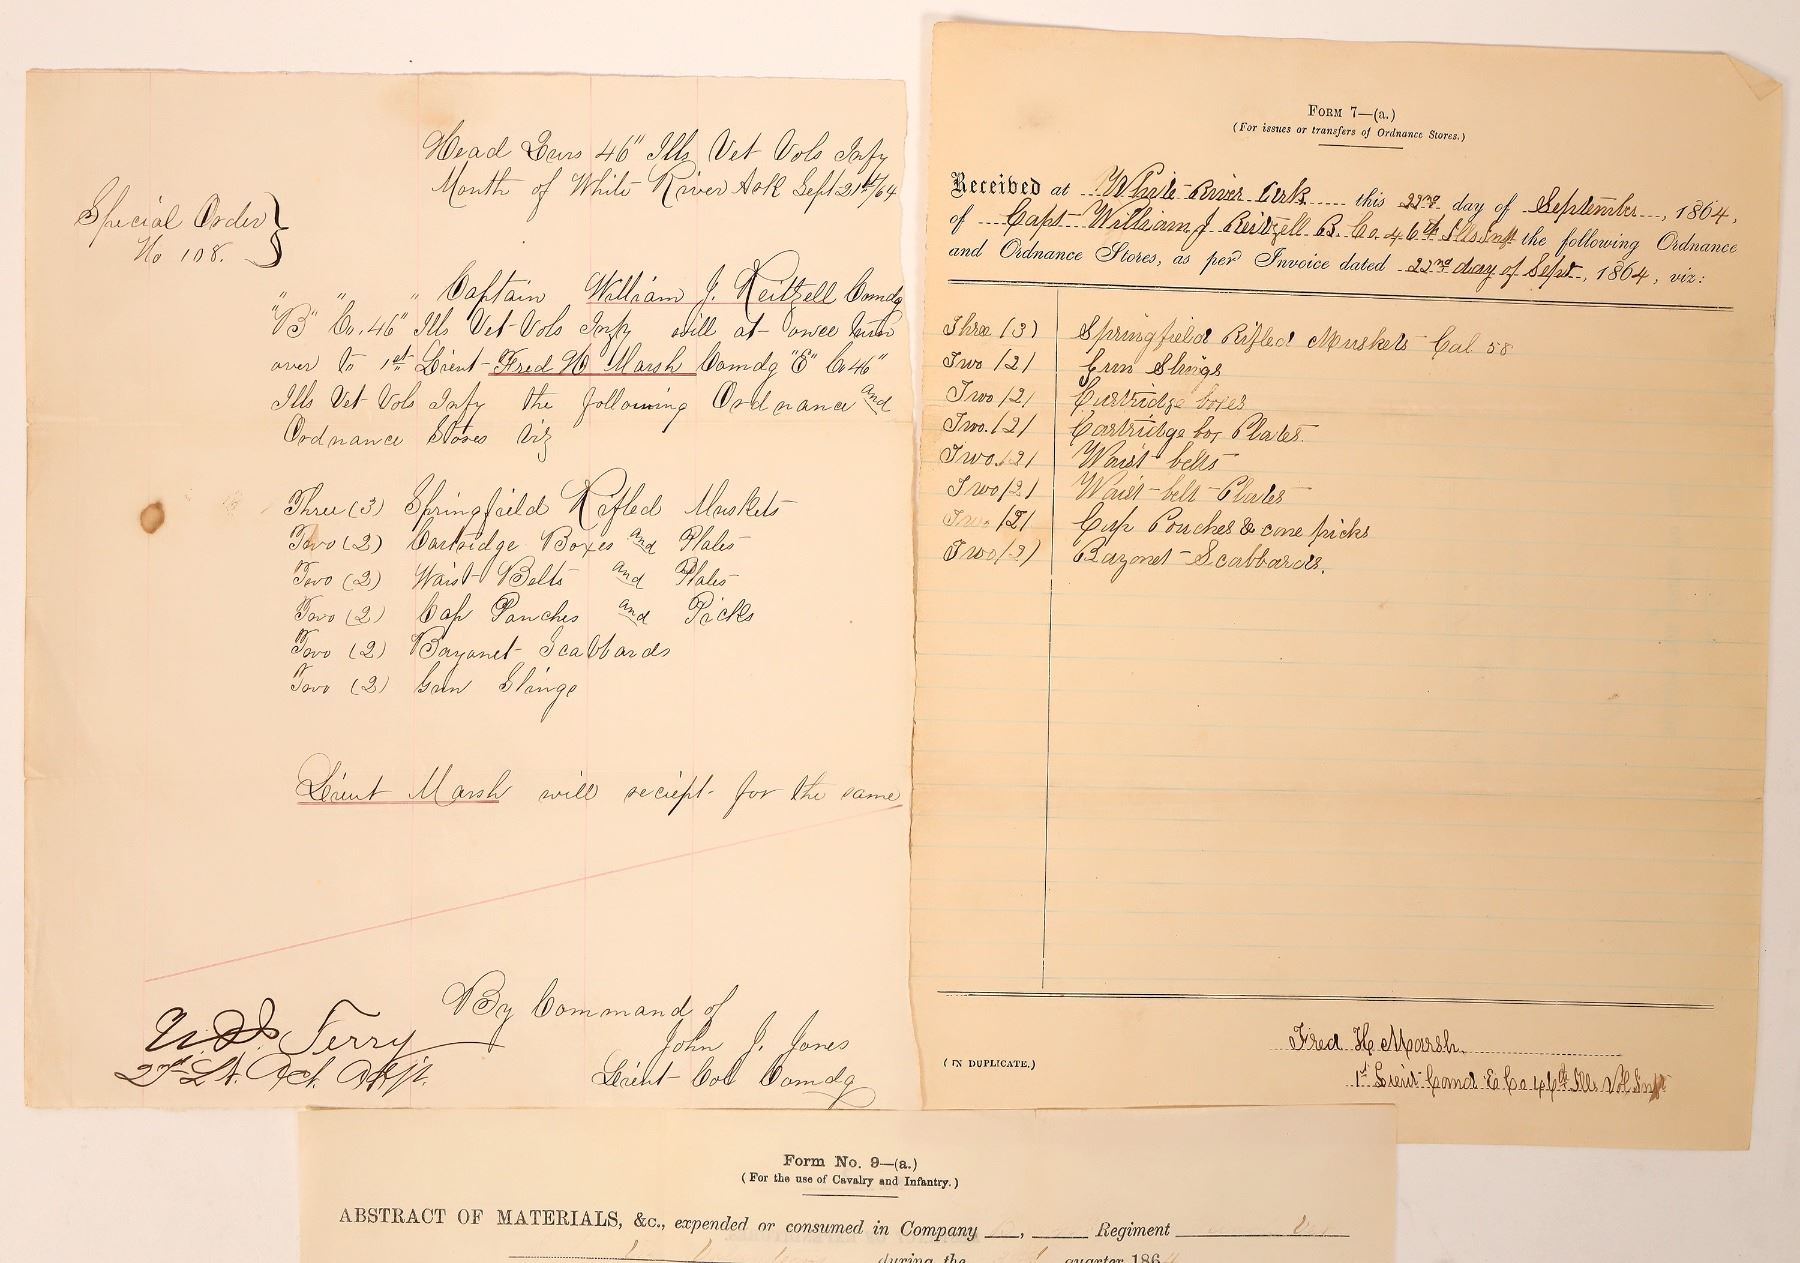 Head Qurs 46" Ills Vet Vols Infy
Month of White River Ark Sept 21st/64
Special Order
No 108.
" " " Captain William J. Reitzell Comdg
"B" Co. 46" Ills Vet Vols Infy will at once turn
over to 1st Lieut Fred H Marsh Comdg "E" Co 46"
Ills Vet Vols Infy the following Ordnance and
Ordnance Stores viz
Three (3) Springfield Rifled Muskets
Two (2) Cartridge Boxes and Plates
Two (2) Waist Belts and Plates
Two (2) Cap Pouches and Picks
Two (2) Bayonet Scabbards
Two (2) Gun Slings
Lieut Marsh will reciept for the same
By Command of
John J. Jones
Lieut Col Comdg
Terry
2nd Lt. Act Adjt.
Form 7—(a.)
(For issues or transfers of Ordnance Stores.)
Received at White River Ark. this 22nd day of September, 1864,
of Capt William J Reitzell B. Co. 46th Ills Inft the following Ordnance
and Ordnance Stores, as per Invoice dated 22nd day of Sept, 1864, viz:
Three (3) Springfield Rifled Muskets Cal 58
Two (2) Gun Slings
Two (2) Cartridge boxes
Two. (2) Cartridge box Plates.
Two. (2) Waist belts
Two (2) Waist-belt-Plates
Two (2) Cap Pouches & cone picks
Two (2) Bayonet-Scabbards.
(IN DUPLICATE.)
Fred H Marsh.
1st Lieut Comd E Co 46th Ills Vol Inft
Form No. 9—(a.)
(For the use of Cavalry and Infantry.)
ABSTRACT OF MATERIALS, &c., expended or consumed in Company , Regiment
during the quarter 1864